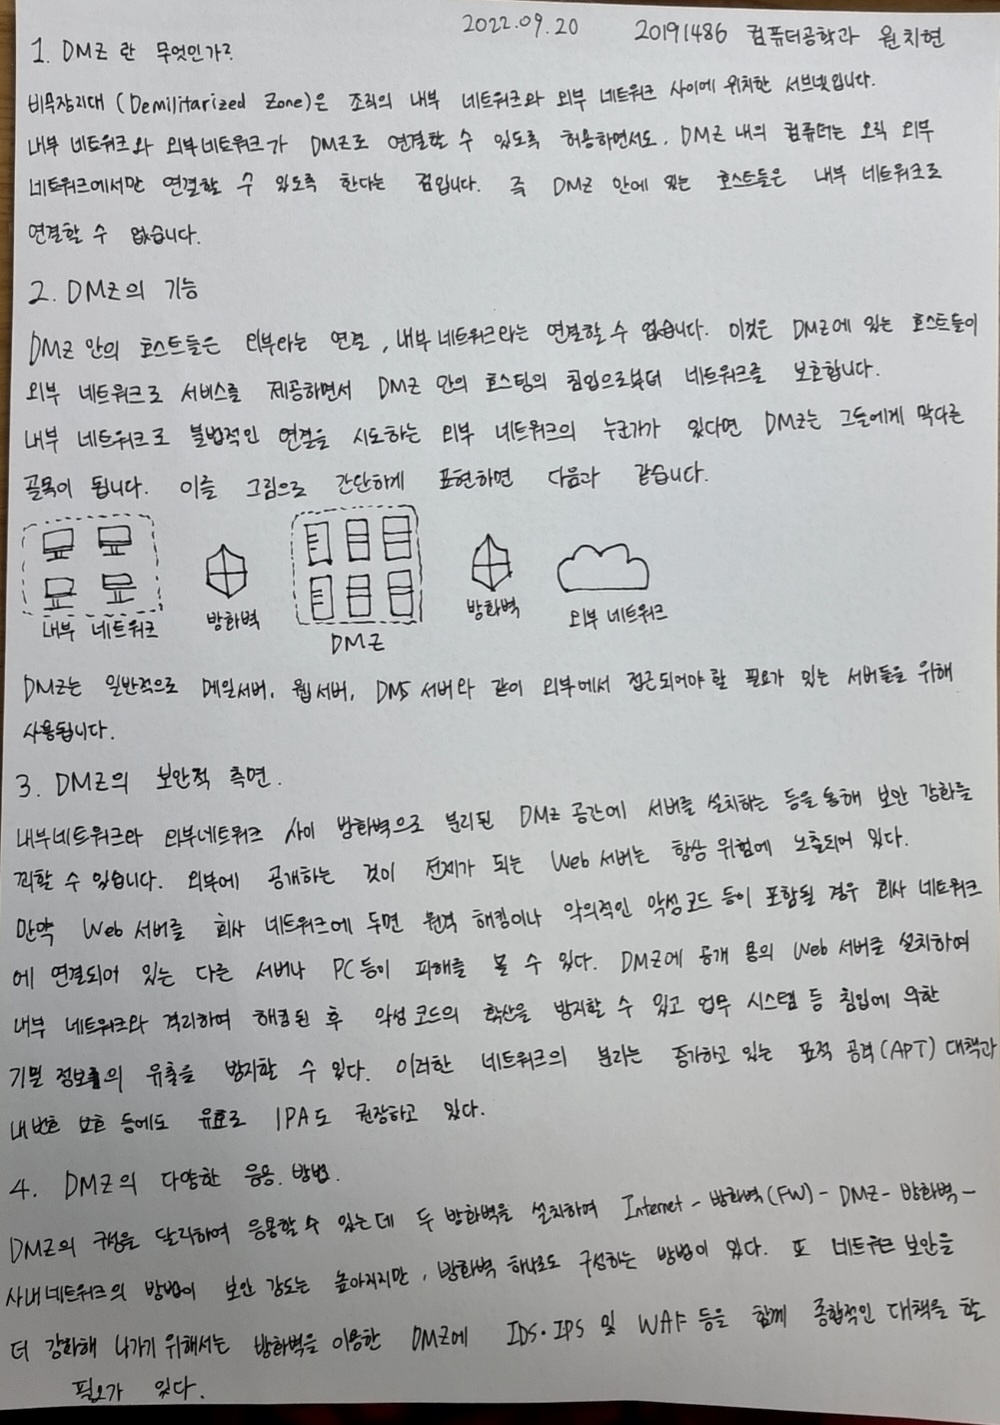 2022.09.20 20191486 컴퓨터공학과 원치현
1. DMZ 란 무엇인가?
비무장지대 (Demilitarized Zone)은 조직의 내부 네트워크와 외부 네트워크 사이에 위치한 서브넷입니다.
내부 네트워크와 외부네트워크가 DMZ로 연결할 수 있도록 허용하면서도, DMZ 내의 컴퓨터는 오직 외부
네트워크에서만 연결할 수 있도록 한다는 점입니다. 즉 DMZ 안에 있는 호스트들은 내부 네트워크로
연결할 수 없습니다.
2. DMZ의 기능
DMZ 안의 호스트들은 외부라는 연결, 내부 네트워크라는 연결할 수 없습니다. 이것은 DMZ에 있는 호스트들이
외부 네트워크로 서비스를 제공하면서 DMZ 안의 호스팅의 침입으로부터 네트워크를 보호합니다.
내부 네트워크로 불법적인 연결을 시도하는 외부 네트워크의 누군가가 있다면 DMZ는 그들에게 막다른
골목이 됩니다. 이를 그림으로 간단하게 표현하면 다음과 같습니다.
내부 네트워크 방화벽 DMZ 방화벽 외부 네트워크
DMZ는 일반적으로 메일서버, 웹서버, DNS 서버와 같이 외부에서 접근되어야 할 필요가 있는 서버들을 위해
사용됩니다.
3. DMZ의 보안적 측면.
내부네트워크와 외부네트워크 사이 방화벽으로 분리된 DMZ 공간에 서버를 설치하는 등을 통해 보안 강화를
꾀할 수 있습니다. 외부에 공개하는 것이 전제가 되는 Web 서버는 항상 위험에 노출되어 있다.
만약 Web 서버를 회사 네트워크에 두면 원격 해킹이나 악의적인 악성코드 등이 포함될 경우 회사 네트워크
에 연결되어 있는 다른 서버나 PC등이 피해를 볼 수 있다. DMZ에 공개 용의 Web 서버를 설치하여
내부 네트워크와 격리하여 해킹된 후 악성 코드의 확산을 방지할 수 있고 업무 시스템 등 침입에 의한
기밀 정보의 유출을 방지할 수 있다. 이러한 네트워크의 분리는 증가하고 있는 표적 공격(APT) 대책과
내번호 보호 등에도 유효로 IPA도 권장하고 있다.
4. DMZ의 다양한 응용. 방법.
DMZ의 구성을 달리하여 응용할 수 있는데 두 방화벽을 설치하여 Internet - 방화벽(FW) - DMZ - 방화벽 -
사내네트워크의 방법이 보안 강도는 높아지지만, 방화벽 하나로도 구성하는 방법이 있다. 또 네트워크 보안을
더 강화해 나가기 위해서는 방화벽을 이용한 DMZ에 IDS·IPS 및 WAF 등을 함께 종합적인 대책을 할
필요가 있다.